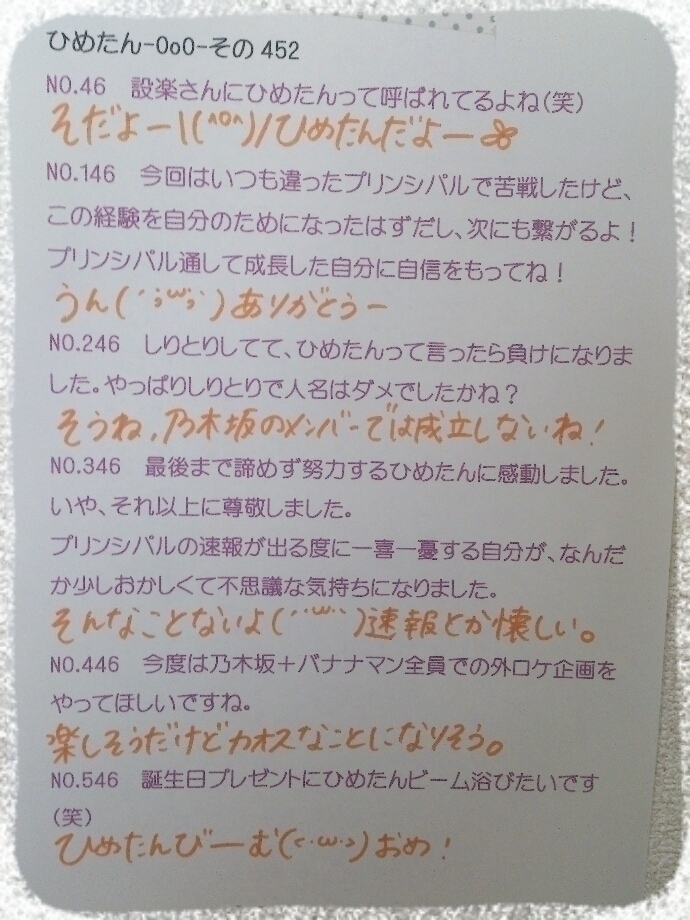 ひめたん-OoO-その452
NO.46　設楽さんにひめたんって呼ばれてるよね(笑)
そだよー\(^o^)/ひめたんだよー
NO.146　今回はいつも違ったプリンシパルで苦戦したけど、
この経験を自分のためになったはずだし、次にも繋がるよ！
プリンシパル通して成長した自分に自信をもってね！
うん(´;ω;`)ありがとうー
NO.246　しりとりしてて、ひめたんって言ったら負けになりま
した。やっぱりしりとりで人名はダメでしたかね？
そうね、乃木坂のメンバーでは成立しないね！
NO.346　最後まで諦めず努力するひめたんに感動しました。
いや、それ以上に尊敬しました。
プリンシパルの速報が出る度に一喜一憂する自分が、なんだ
か少しおかしくて不思議な気持ちになりました。
そんなことないよ(´･ω･`)速報とか懐しい。
NO.446　今度は乃木坂＋バナナマン全員での外ロケ企画を
やってほしいですね。
楽しそうだけどカオスなことになりそう。
NO.546　誕生日プレゼントにひめたんビーム浴びたいです
(笑)
ひめたんびーむ(<･ω･>)おめ！